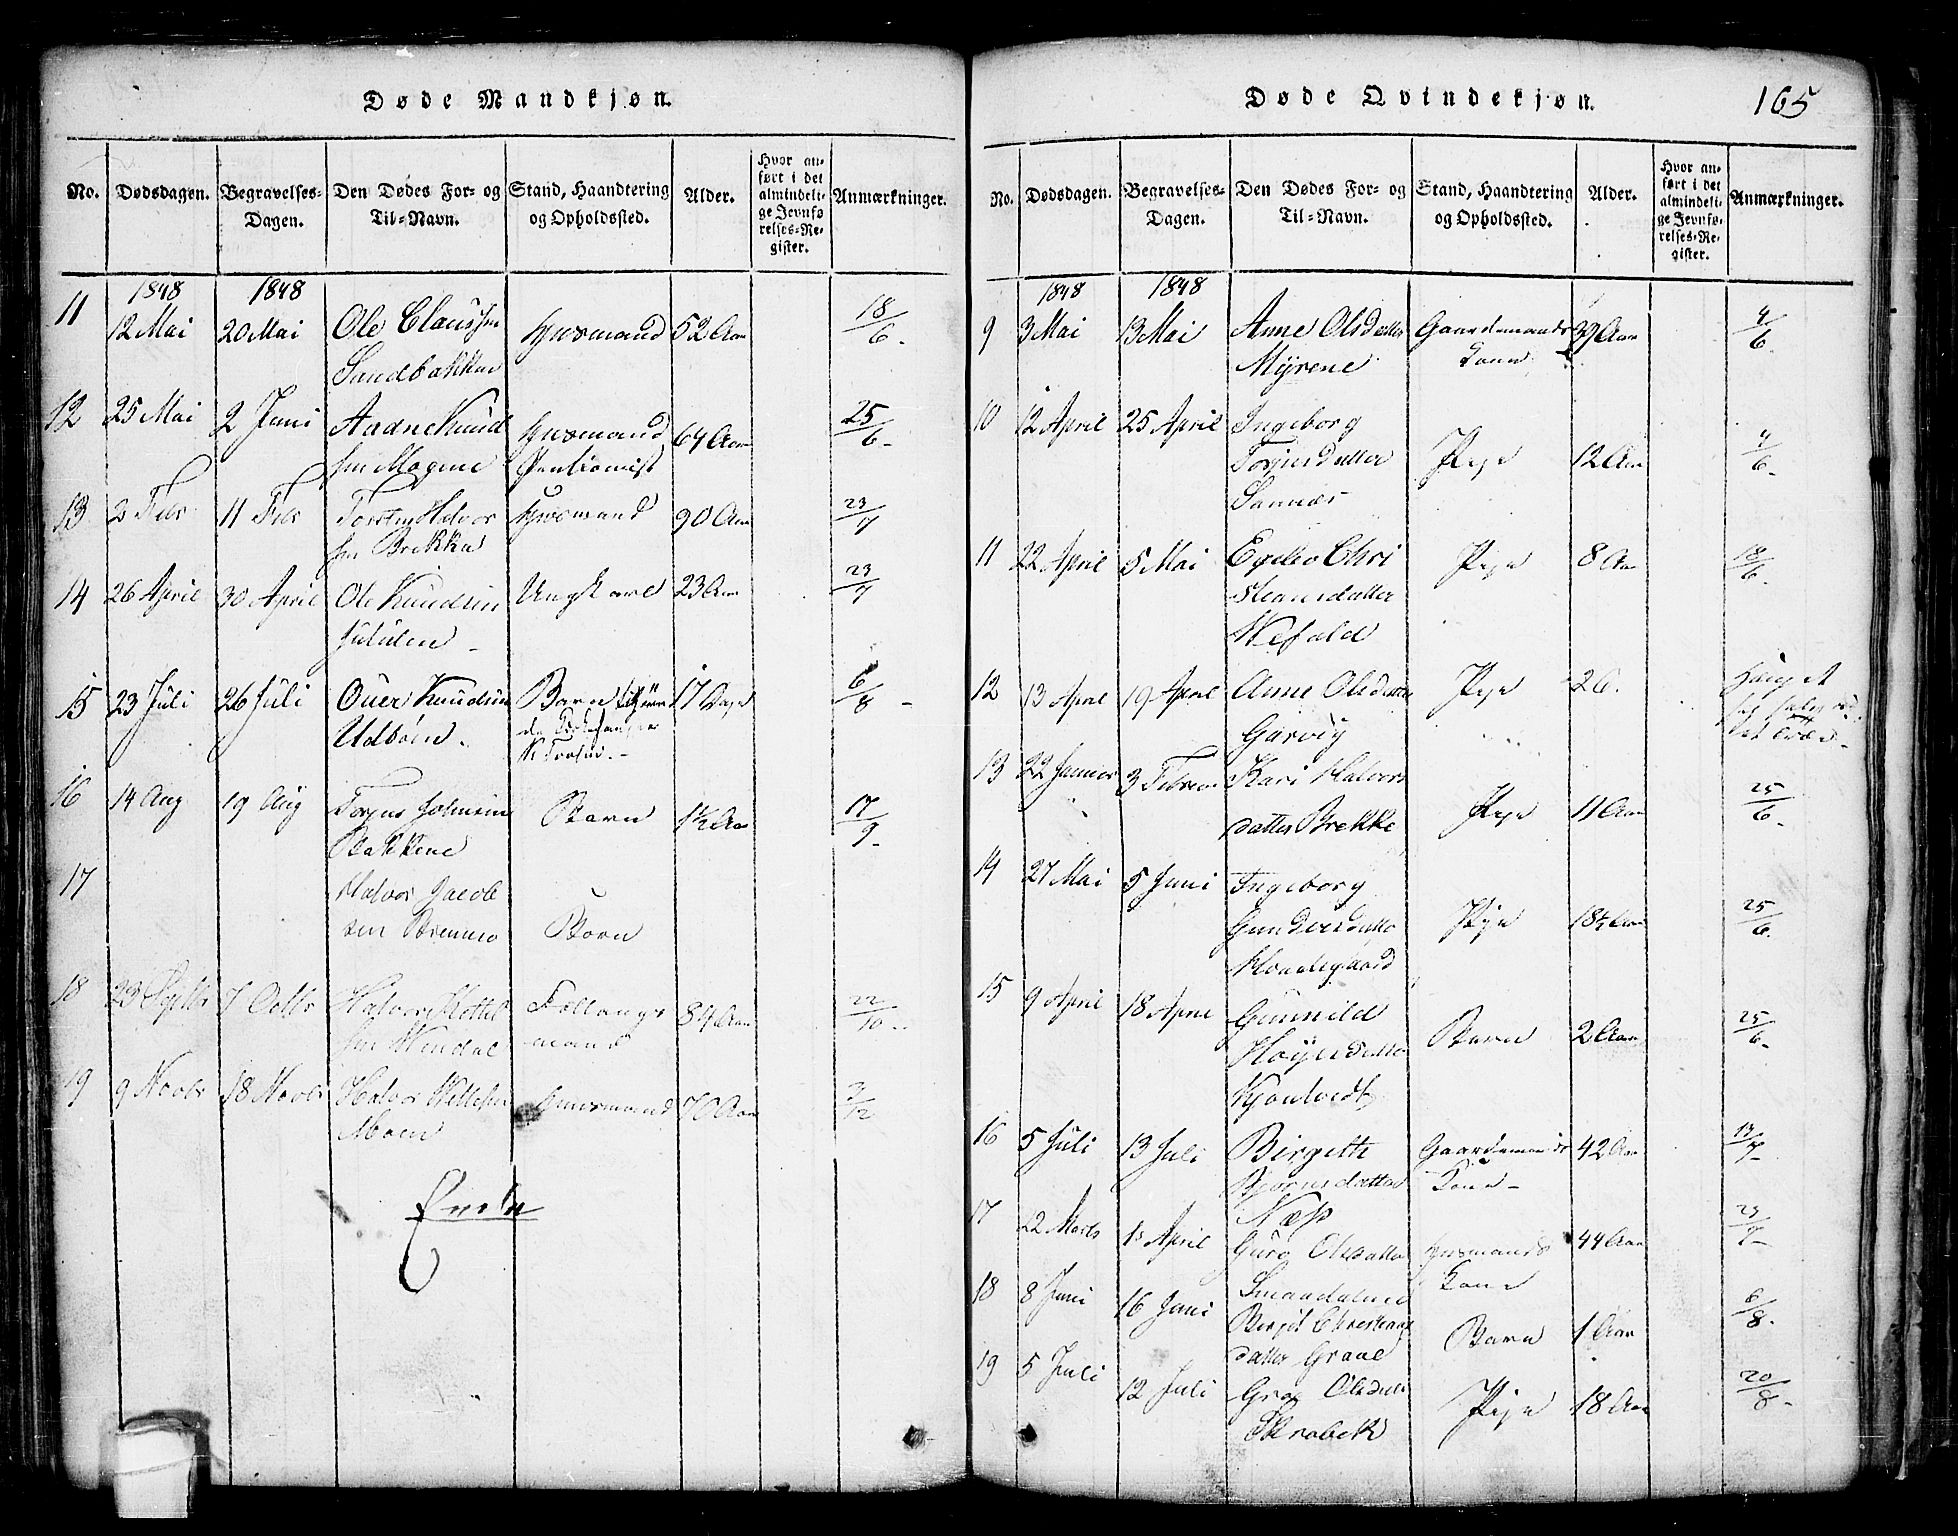 Døde Mandkjøn.
No. Dødsdagen. Begravelses-Dagen. Den Dødes For- og Til-Navn. Stand, Haandtering og Opholdssted. Alder. Hvor anført i det almindelige Jevnførelses-Register. Anmærkninger.
1848 1848
11 12 Mai 20 Mai Ole Claussen Husmand 52 Aar 18/6.
Sandbakken
12 25 Mai 2 Juni Aadne Knud Husmand 64 Aar 25/6-
sen Mogene Pentionist
13 2 Febr 11 Febr Torsten Halvor Husmand 90 Aar 23/7
sen Brekka
14 26 April 30 April Ole Knudsen Ungkarl 23 Aar 23/7
15 23 Juli 26 Juli Knudsen Barn 17 Dage 6/8-
Udbøen.
16 14 Aug 19 Aug Torjus Johnsen Barn 1½ Aar 17/9-
Bakkene
17 Halvor Jacob
sen Barn
18 23 Septbr 7 Octbr Halvor Kittel Føllaugs 84 Aar 22/10-
sen mand
19 9 Novbr 18 Novbr Halvor Husmand 70 Aar 3/12
Moen
Døde Qvindekjøn. 165
No. Dødsdagen. Begravelses-Dagen. Den Dødes For- og Til-Navn. Stand, Haandtering og Opholdssted. Alder. Hvor anført i det almindelige Jevnførelses-Register. Anmærkninger.
1848 1848
9 3 Mai 13 Mai Anne Olsdatter Gaardemands 39 Aar 4/6.
Myrene Kone
10 12 April 25 April Ingeborg
Torjusdatter Pige 12 Aar 4/6-
Sannes
11 22 April 5 Mai Chri Pige 8 Aar 18/6-
stiansdatter
12 13 April 19 April Anne Olsdatter Pige 26.
Garvig
13 22 Januar 3 Februar Kari Halvors
datter Brekke Pige 11 Aar 25/6-
14 27 Mai 5 Juni Ingeborg
Gundersdatter Pige 18½ Aar 25/6.
15 9 April 18 April Gunnild
Barn 2 Aar 25/6-
16 5 Juli 13 Juli Birgith Gaardemands 42 Aar 17/7-
Bjørnsdatter Kone-
Næss
17 22 Marts 1s April Gurg Olsdatter Husmands 44 Aar 23/7-
Kone
18 8 Juni 16 Juni
Birgit Christians Barn 1 Aar 6/8.
datter Graae
19 5 Juli 12 Juli Gro Olsdatr Pige 18 Aar 20/8-
Skrobek